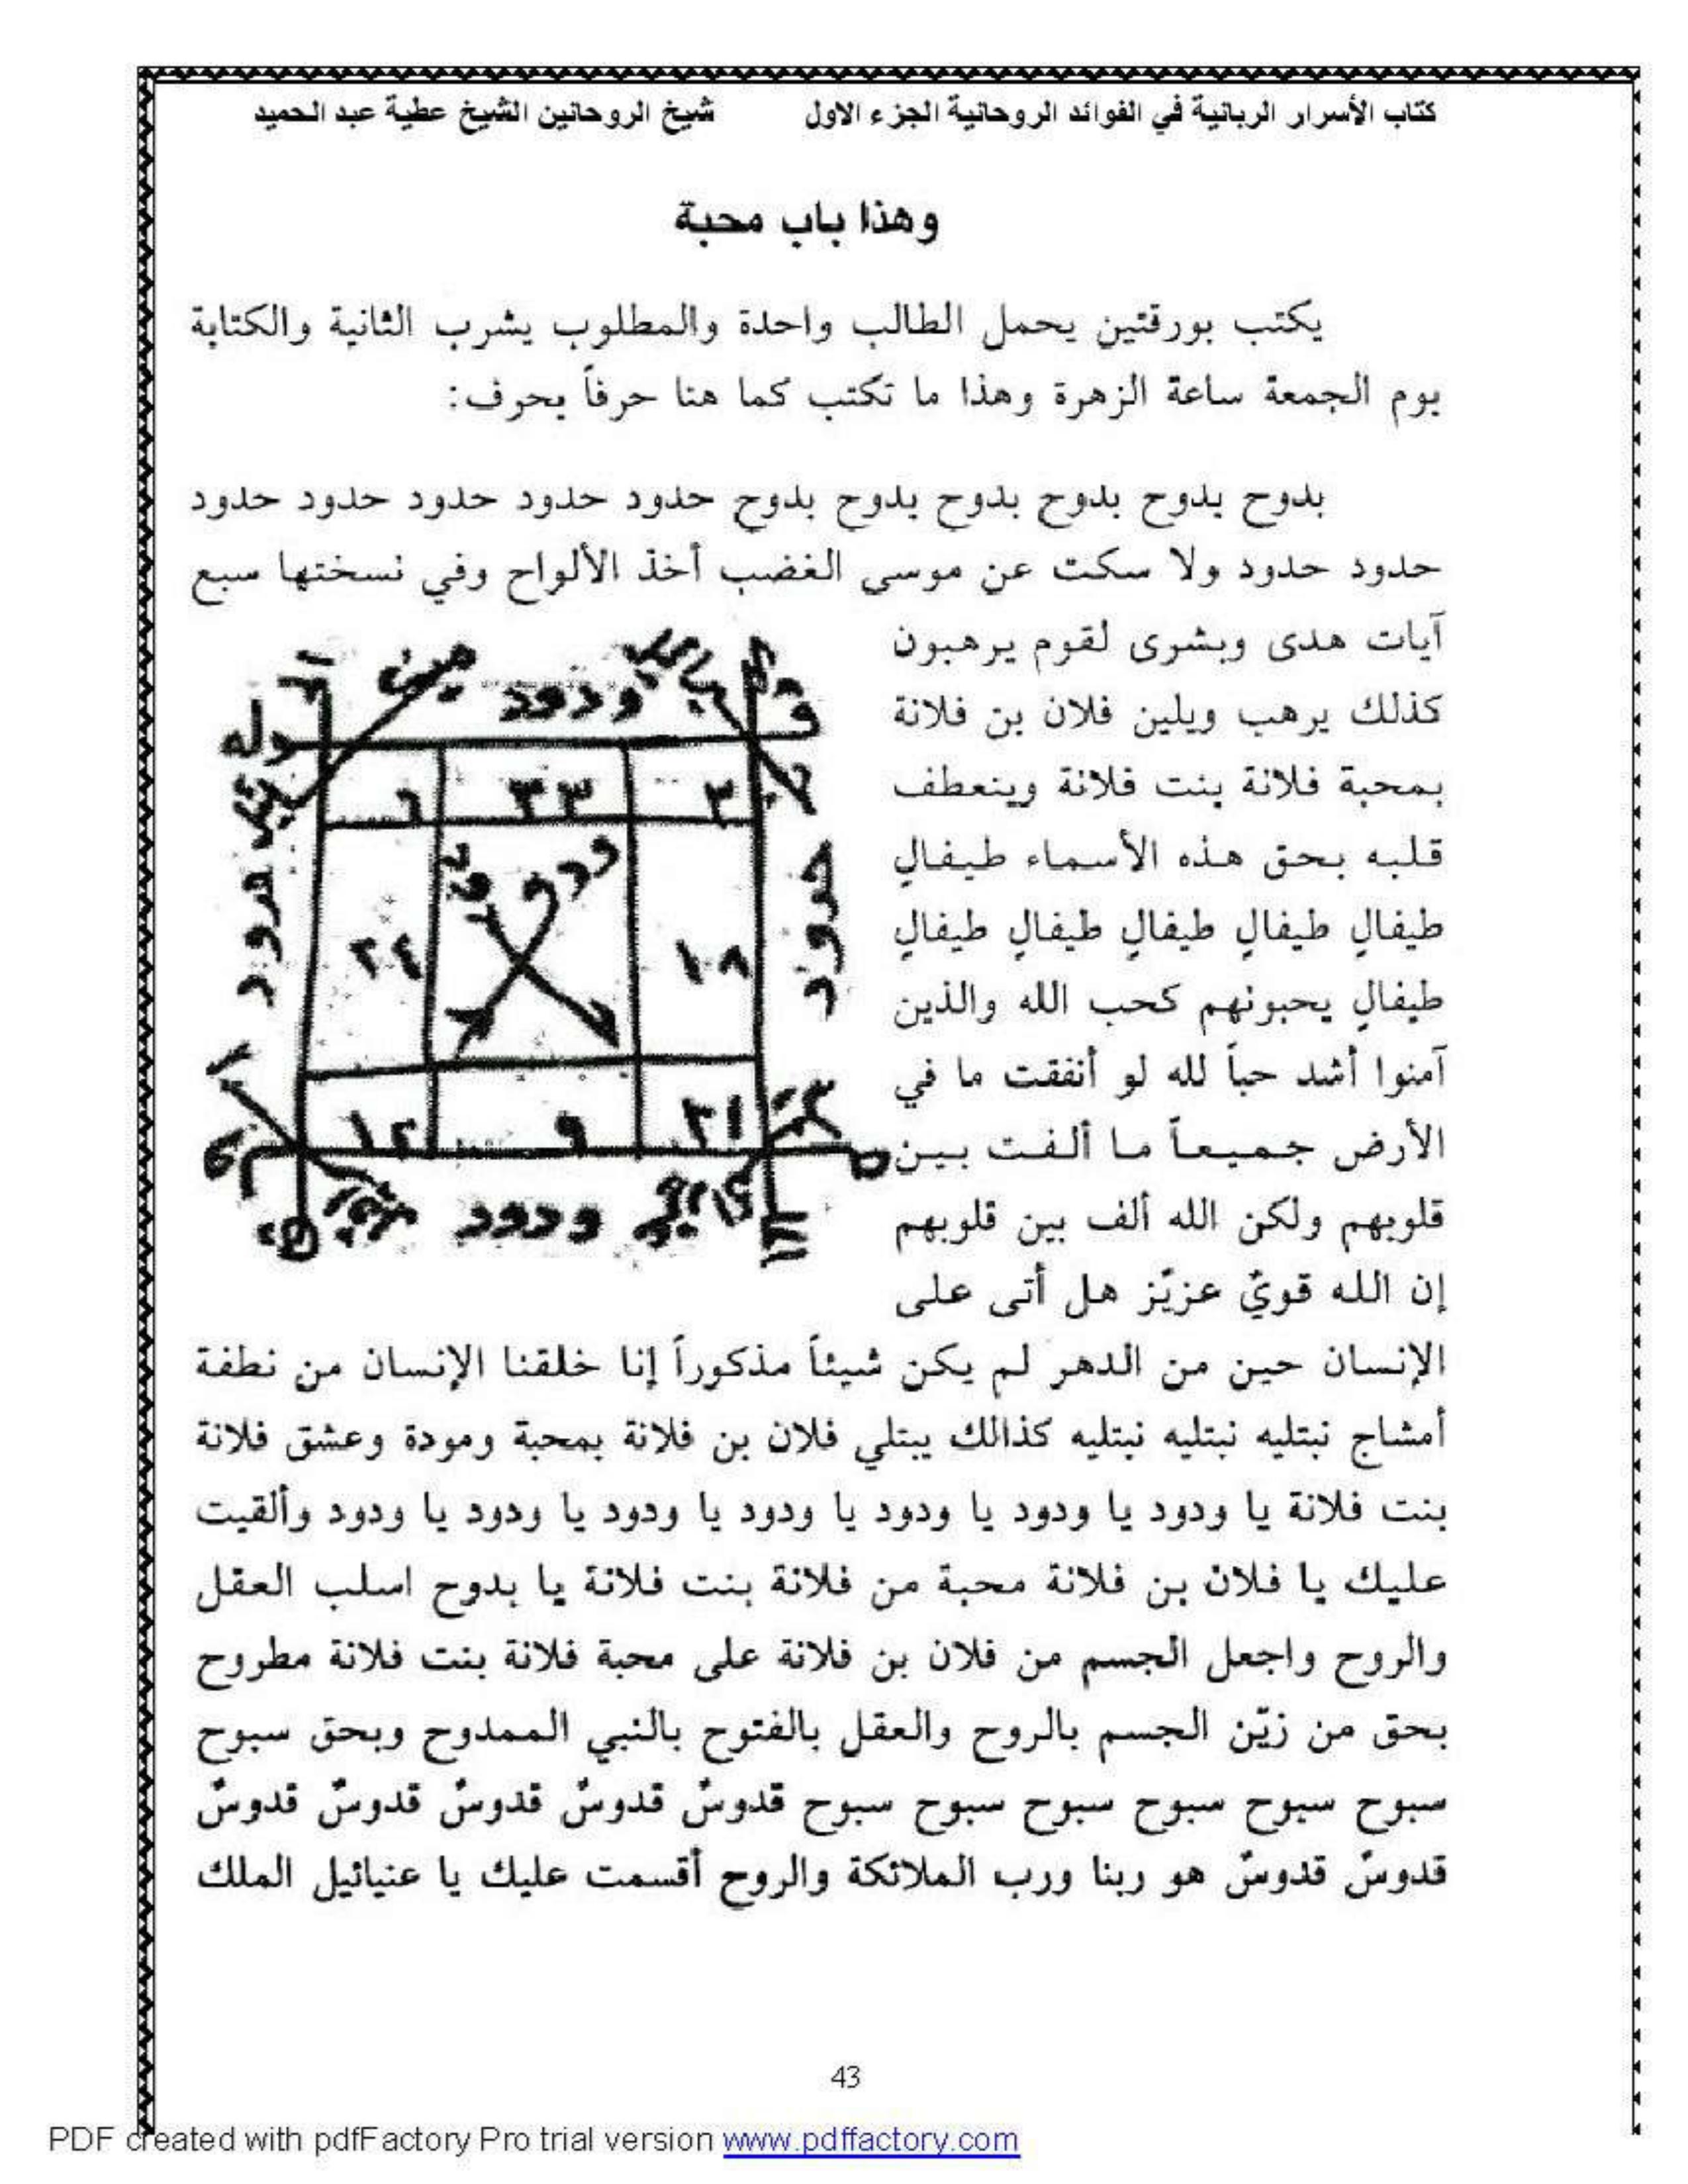 كتاب الأسرار الربانية في الفوائد الروحانية الجزء الاول شيخ الروحانين الشيخ عطية عبد الحميد
وهذا باب محبة
يكتب بورقتين يحمل الطالب واحدة والمطلوب يشرب الثانية والكتابة
يوم الجمعة ساعة الزهرة وهذا ما تكتب كما هنا حرفاً بحرف:
بدوح بدوح بدوح بدوح بدوح بدوح حدود حدود حدود حدود حدود
حدود حدود ولا سكت عن موسى الغضب أخذ الألواح وفي نسختها سبع
آيات هدى وبشرى لقوم يرهبون
كذلك يرهب ويلين فلان بن فلانة
بمحبة فلانة بنت فلانة وينعطف
قلبه بحق هذه الأسماء طيفالٍ
طيفالٍ طيفالٍ طيفالٍ طيفالٍ طيفالٍ
طيفالٍ يحبونهم كحب الله والذين
آمنوا أشد حباً لله لو أنفقت ما في
الأرض جميعاً ما ألفت بين
قلوبهم ولكن الله ألف بين قلوبهم
إن الله قويٌ عزيٌز هل أتى على
ودود
٦ ٣٣ ٣
ودود
٢٤ ١٨
١٢ ٩ ٢١
ودود
الإنسان حين من الدهر لم يكن شيئاً مذكوراً إنا خلقنا الإنسان من نطفة
أمشاج نبتليه نبتليه نبتليه كذالك يبتلي فلان بن فلانة بمحبة ومودة وعشق فلانة
بنت فلانة يا ودود يا ودود يا ودود يا ودود يا ودود يا ودود يا ودود وألقيت
عليك يا فلان بن فلانة محبة من فلانة بنت فلانة يا بدوح اسلب العقل
والروح واجعل الجسم من فلان بن فلانة على محبة فلانة بنت فلانة مطروح
بحق من زيّن الجسم بالروح والعقل بالفتوح بالنبي الممدوح وبحق سبوح
سبوح سبوح سبوح سبوح سبوح سبوح قدوسٌ قدوسٌ قدوسٌ قدوسٌ قدوسٌ
قدوسٌ قدوسٌ هو ربنا ورب الملائكة والروح أقسمت عليك يا عنيائيل الملك
43
PDF created with pdfFactory Pro trial version www.pdffactory.com